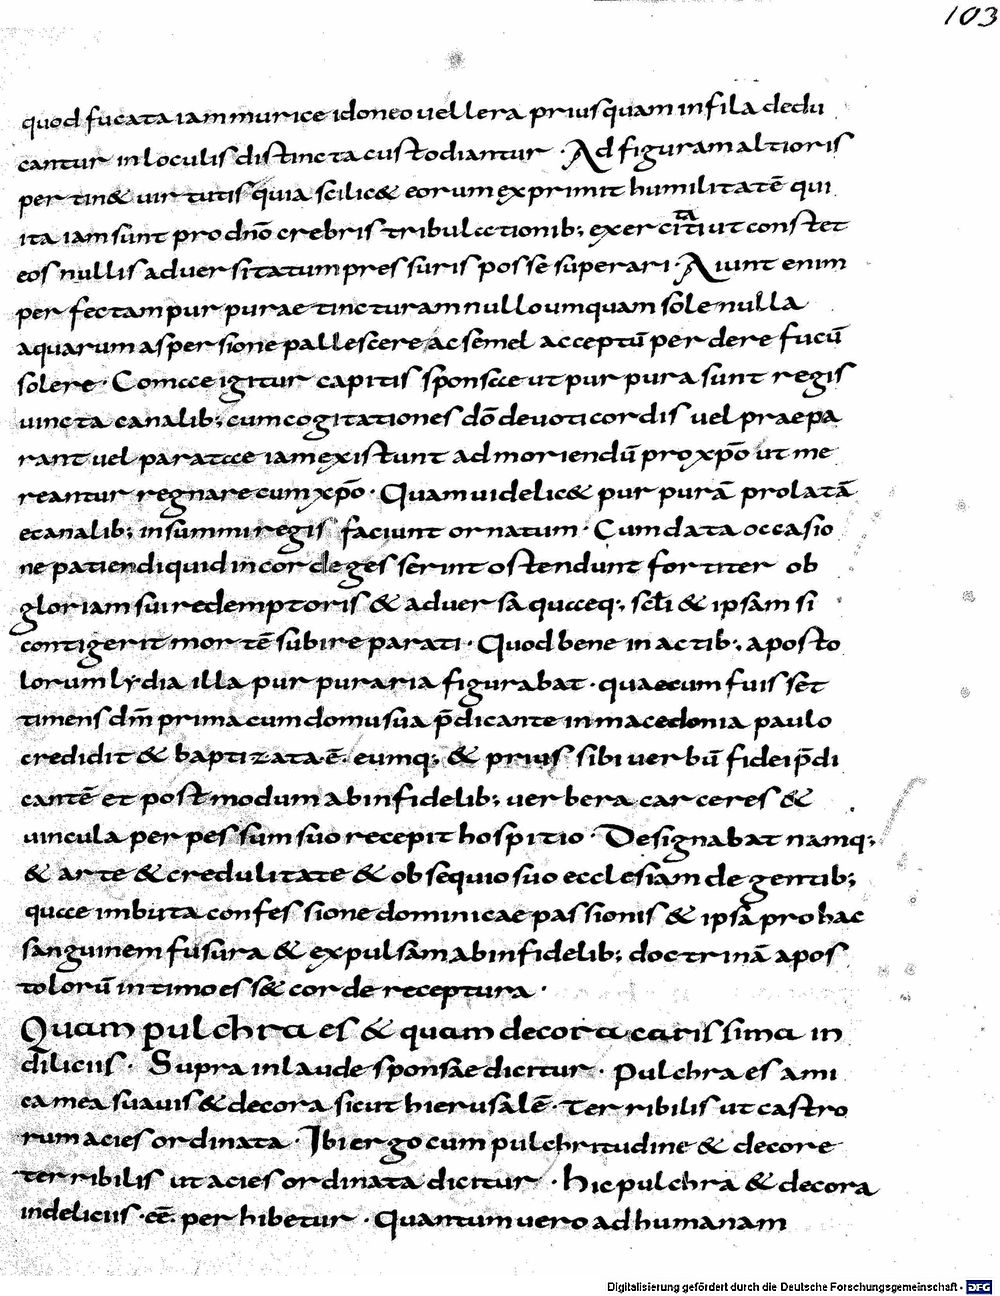 103
quod fucata iam murice idoneo uellera priusquam in fila dedu
cantur in loculis distincta custodiantur · Ad figuram altioris
per tin& uirtutis quia scilic& eorum exprimit humilitatē qui
ita iam sunt pro dn̄o crebris tribulationib; exercitati ut constet
eos nullis aduersitatum pressuris posse superari · Aiunt enim
perfectam purpurae tincturam nullo umquam sole nulla
aquarum aspersione pallescere ac semel acceptū perdere fucū
solere · Comae igitur capitis sponsae ut purpura sunt regis
uincta canalib; cum cogitationes dō deuoti cordis uel praepa
rant uel paratae iam existunt ad moriendū pro xp̄o ut me
reantur regnare cum xp̄o · Quam uidelic& purpurā prolatā
e canalib; in summi regis faciunt ornatum · Cum data occasio
ne patiendi quid in corde gesserint ostendunt fortiter ob
gloriam sui redemptoris & aduersa quaeq; scl̄i & ipsam si
contigerit mortē subire parati · Quod bene in actib; aposto
lorum lydia illa purpuraria figurabat · quae cum fuisset
timens dm̄ prima cum domu sua p̄dicante in macedonia paulo
credidit & baptizata ē. eumq; & prius sibi uerbū fidei p̄di
cantē et postmodum ab infidelib; uerbera carceres &
uincula perpessum suo recepit hospitio · Designabat namq;
& arte & credulitate & obsequio suo ecclesiam de gentib;
quae imbuta confessione dominicae passionis & ipsā pro hac
sanguinem fusura & expulsam ab infidelib; doctrinā apos
tolorū intimo ess& corde receptura ·
Quam pulchra es & quam decora carissima in
diliciis · Supra in laude sponsae dicitur · Pulchra es ami
ca mea suauis & decora sicut hierusalē · Terribilis ut castro
rum acies ordinata · Ibi ergo cum pulchritudine & decore
terribilis ut acies ordinata dicitur · hic pulchra & decora
in deliciis · eē. perhibetur · Quantum uero ad humanam
Digitalisierung gefördert durch die Deutsche Forschungsgemeinschaft - DFG